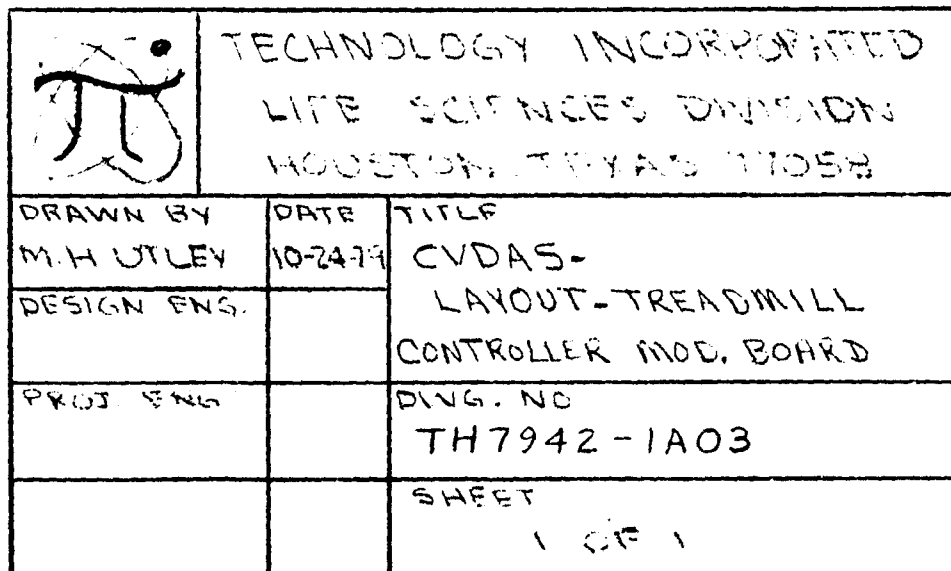 TECHNOLOGY INCORPORATED
LIFE SCIENCES DIVISION
HOUSTON, TEXAS 77058
DRAWN BY
M.H UTLEY
DATE
10-24-79
TITLE
CVDAS-
LAYOUT-TREADMILL
CONTROLLER MOD. BOARD
DESIGN ENG.
PROJ. ENG
DWG. NO
TH7942-1A03
SHEET
1 OF 1